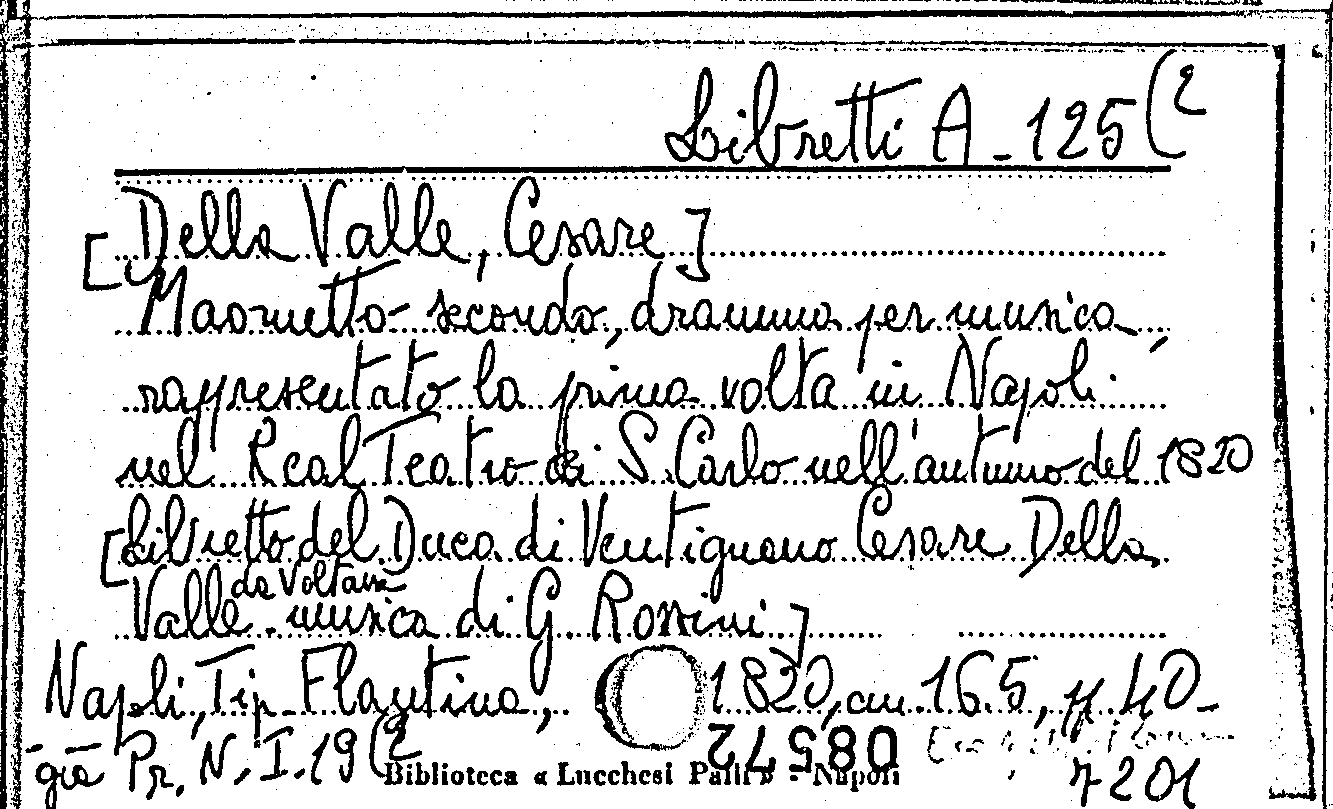 Libretti A - 125 (2
[Della Valle, Cesare]
Maometto secondo, dramma per musica,
rappresentato la prima volta in Napoli
nel Real Teatro di S. Carlo nell'autunno del 1820
[Libretto del Duca di Ventignano Cesare Della
da Voltaire
Valle. musica di G. Rossini]
Napoli, Tip. Flautina, 1820, cm 16.5, pp 40 -
già Pr. N. I. 19 (2
08572
Biblioteca « Lucchesi Palli » - Napoli
7201